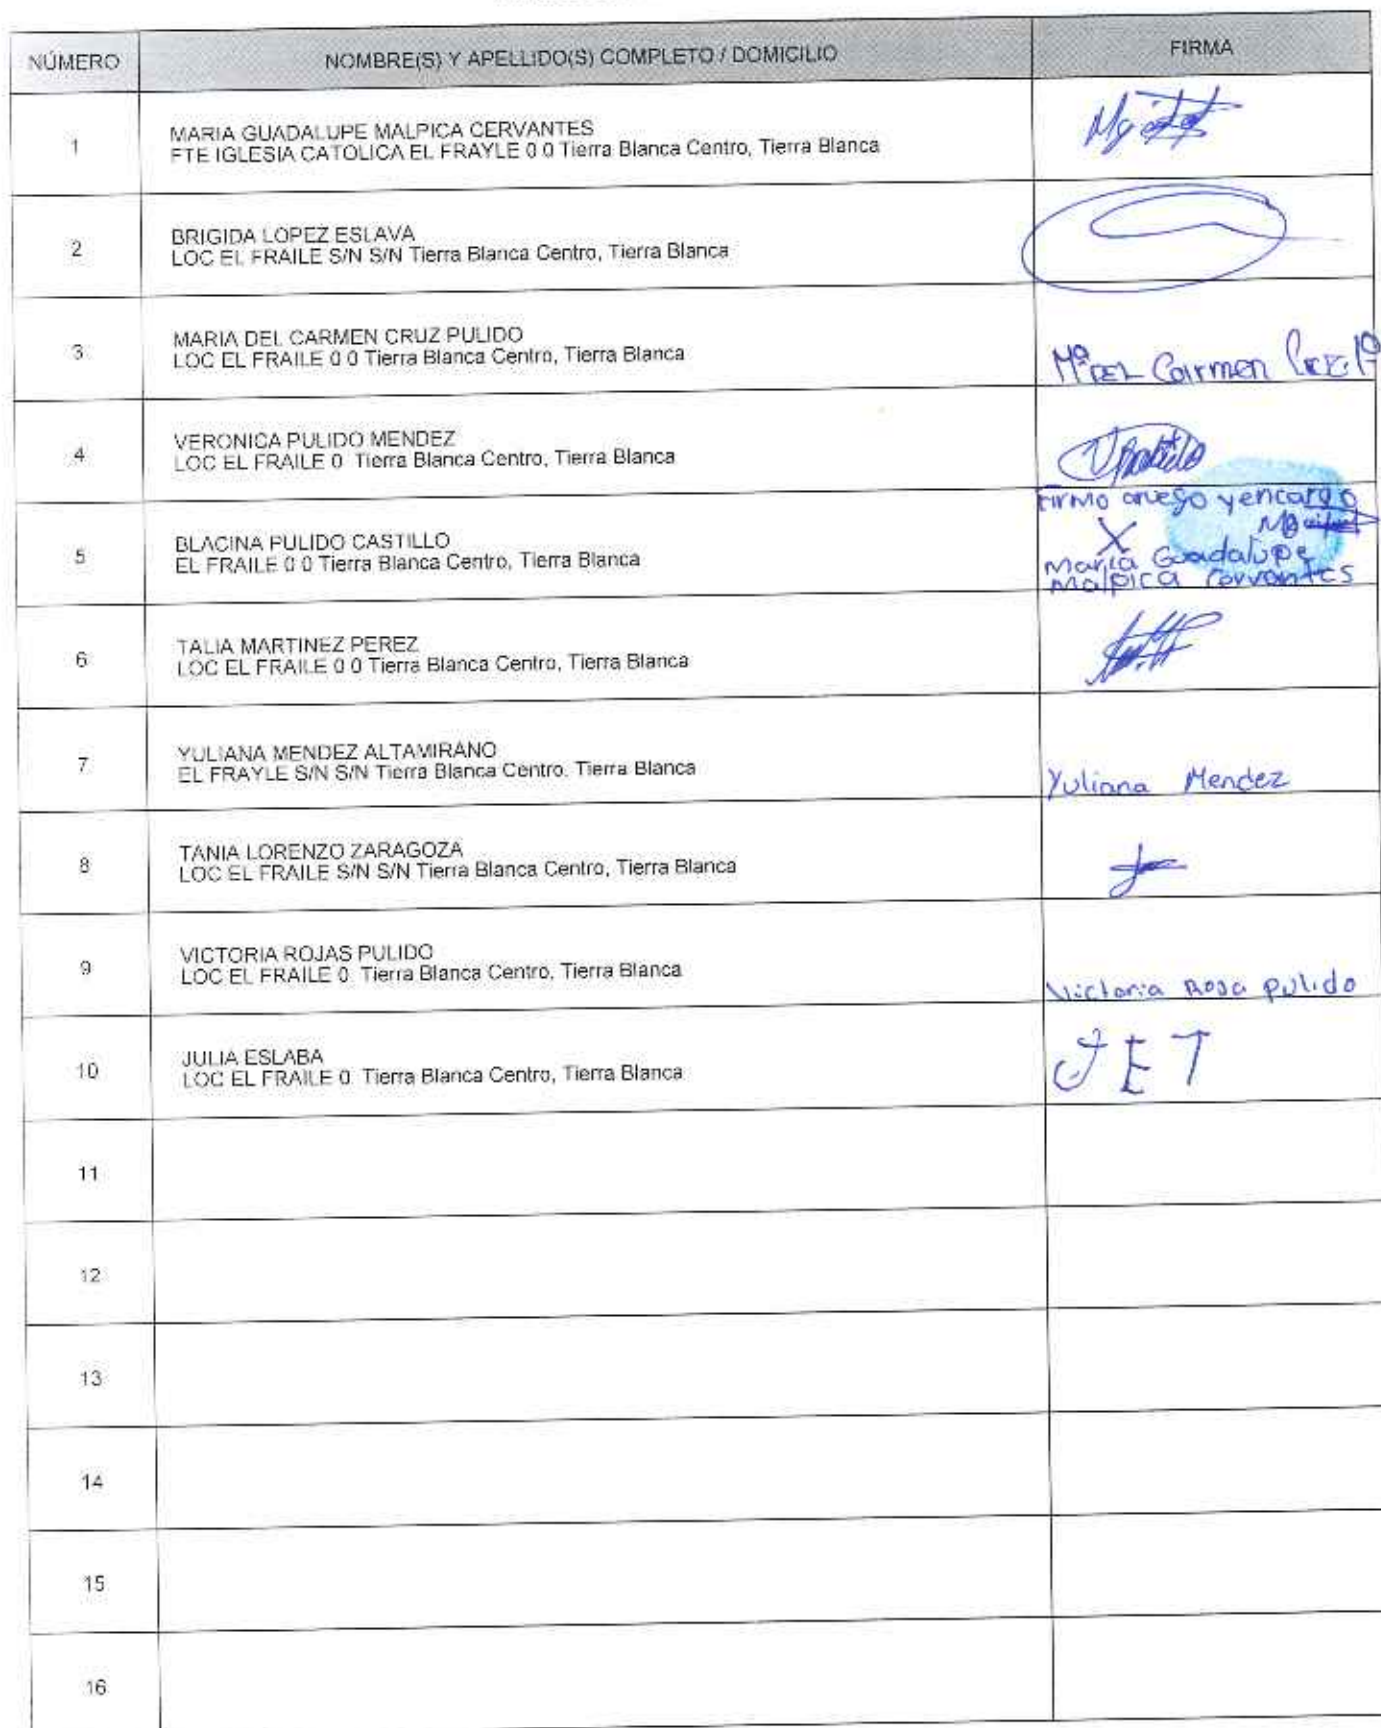 NÚMERO NOMBRE(S) Y APELLIDO(S) COMPLETO / DOMICILIO FIRMA
1 MARIA GUADALUPE MALPICA CERVANTES
FTE IGLESIA CATOLICA EL FRAYLE 0 0 Tierra Blanca Centro, Tierra Blanca
2 BRIGIDA LOPEZ ESLAVA
LOC EL FRAILE S/N S/N Tierra Blanca Centro, Tierra Blanca
3 MARIA DEL CARMEN CRUZ PULIDO
LOC EL FRAILE 0 0 Tierra Blanca Centro, Tierra Blanca
Mª DEL Carmen
4 VERONICA PULIDO MENDEZ
LOC EL FRAILE 0 Tierra Blanca Centro, Tierra Blanca
Firmo aruego y encargo
5 BLACINA PULIDO CASTILLO
EL FRAILE 0 0 Tierra Blanca Centro, Tierra Blanca
X
Maria Guadalupe
Malpica Cervantes
6 TALIA MARTINEZ PEREZ
LOC EL FRAILE 0 0 Tierra Blanca Centro, Tierra Blanca
7 YULIANA MENDEZ ALTAMIRANO
EL FRAYLE S/N S/N Tierra Blanca Centro, Tierra Blanca
Yuliana Mendez
8 TANIA LORENZO ZARAGOZA
LOC EL FRAILE S/N S/N Tierra Blanca Centro, Tierra Blanca
9 VICTORIA ROJAS PULIDO
LOC EL FRAILE 0 Tierra Blanca Centro, Tierra Blanca
Victoria Rosa pulido
10 JULIA ESLABA
LOC EL FRAILE 0 Tierra Blanca Centro, Tierra Blanca
J E T
11
12
13
14
15
16